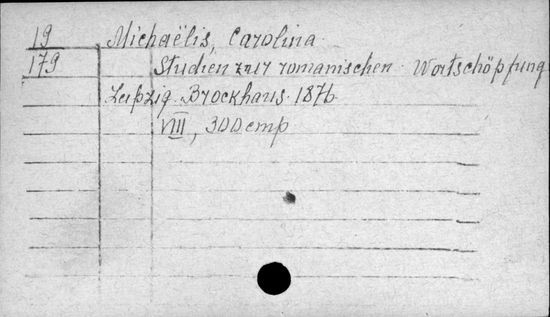 19 Michaëlis, Carolina
179 Studien zur romanischen Wortschöpfung
Leipzig. Brockhaus. 1876
VIII, 300 cmp